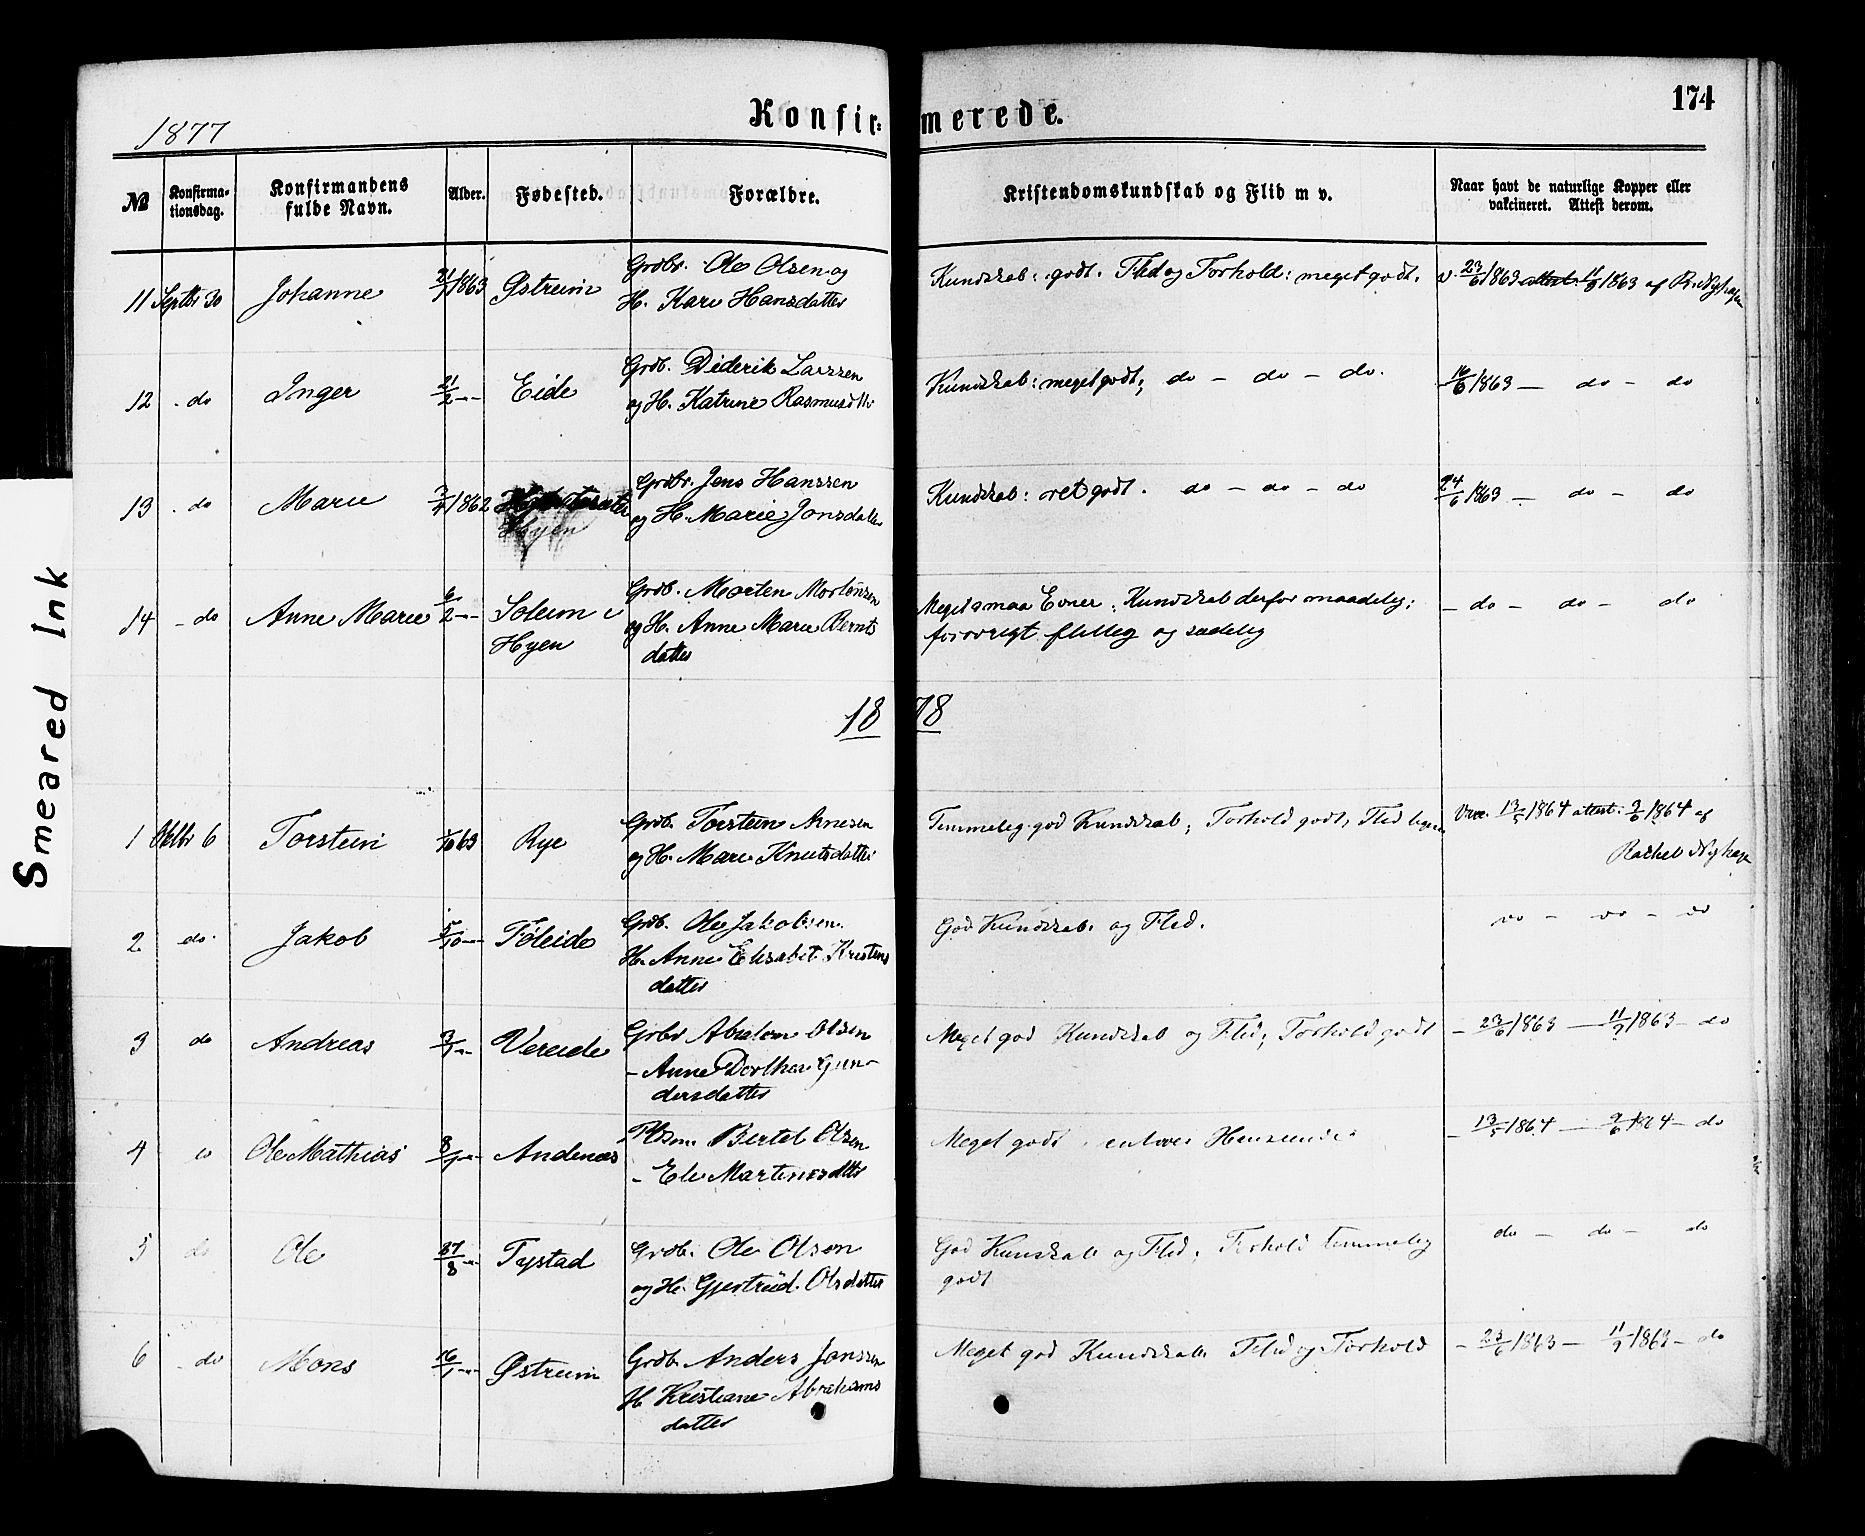 1877
Konfir= merede.
174
№
Konfirma-
tionsdag.
Konfirmandens
fulde Navn.
Alder.
Fødested.
Forældre.
Kristendomskundskab og Flid m v.
Naar havt de naturlige Kopper eller
vakcineret. Attest derom.
11 Septbr 30 Johanne 21/1 1863 Østreim Grdbr. Ole Olsen og
H. Kari Hansdatter
Kundskab: godt. Flid og Forhold: meget godt.
v 23/6 1863 attest. 11/9 1863 af R. Nyhagen
12 - do Inger 21/2 -- Eide Grdb. Diderik Larssen
og H. Katrine Rasmusdttr
Kundskab: meget godt; do - do - do.
16/6 1863 - do - do
13 - do Marie 3/4 1862
Hyen
Grdbr. Jens Hanssen
og H. Marie Jonsdatter
Kundskab: ret godt. do - do - do
24/6 1863 - do - do
14 - do Anne Marie 6/2 -- Solem i
Hyen
Grdb. Morten Mortensen
og H. Anne Marie Bernts
datter
Meget smaa Evner; Kundskab derfor maadelig;
forøvrigt flittig og sædelig
- do - do - do
1878
1 Oktbr 6 Torstein 1/10 63 Rye Grdb. Torstein Arnesen
og H. Mari Knutsdatter
Temmelig god Kundskab; Forhold godt, Flid
Vacc. 13/5 1864 attest: 9/6 1864 af
Rachel Nyhagen
2 do. Jakob 5/10 -- Føleide Grdb. Ole Jakobsen.
H. Anne Elisabet Kristens
datter
God Kundskab og Flid.
do - do - do
3 do Andreas 3/9 -- Vereide Grdbr Absalon Olsen
- Anne Dorthea Gun-
dersdatter
Meget god Kundskab og Flid; Forhold godt
- 23/6 1863 - 11/9 1863 - do
4 do Ole Mathias 8/9 -- Andenæs Plssm. Bertel Olsen
- Eli Martinusdttr
Meget godt i enhver Henseende
- 13/5 1864 - 9/6 1864 - do
5 do Ole 27/8 -- Tystad Grdb. Ole Olsen
og H. Gjertrud Olsdatter
God Kundskab og Flid, Forhold temmelig
godt
do - do - do
6 - do Mons 16/1 -- Østreim Grdb. Anders Jonssen
H Kristiane Abrahams
datter
Meget god Kundskab Flid og Forhold
- 23/6 1863 - 11/9 1863 - do
Smeared Ink